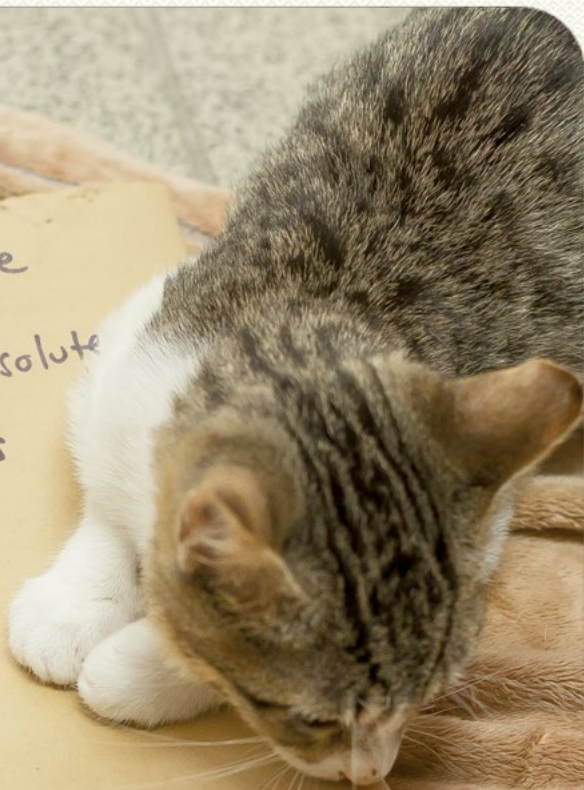 e
solute
s